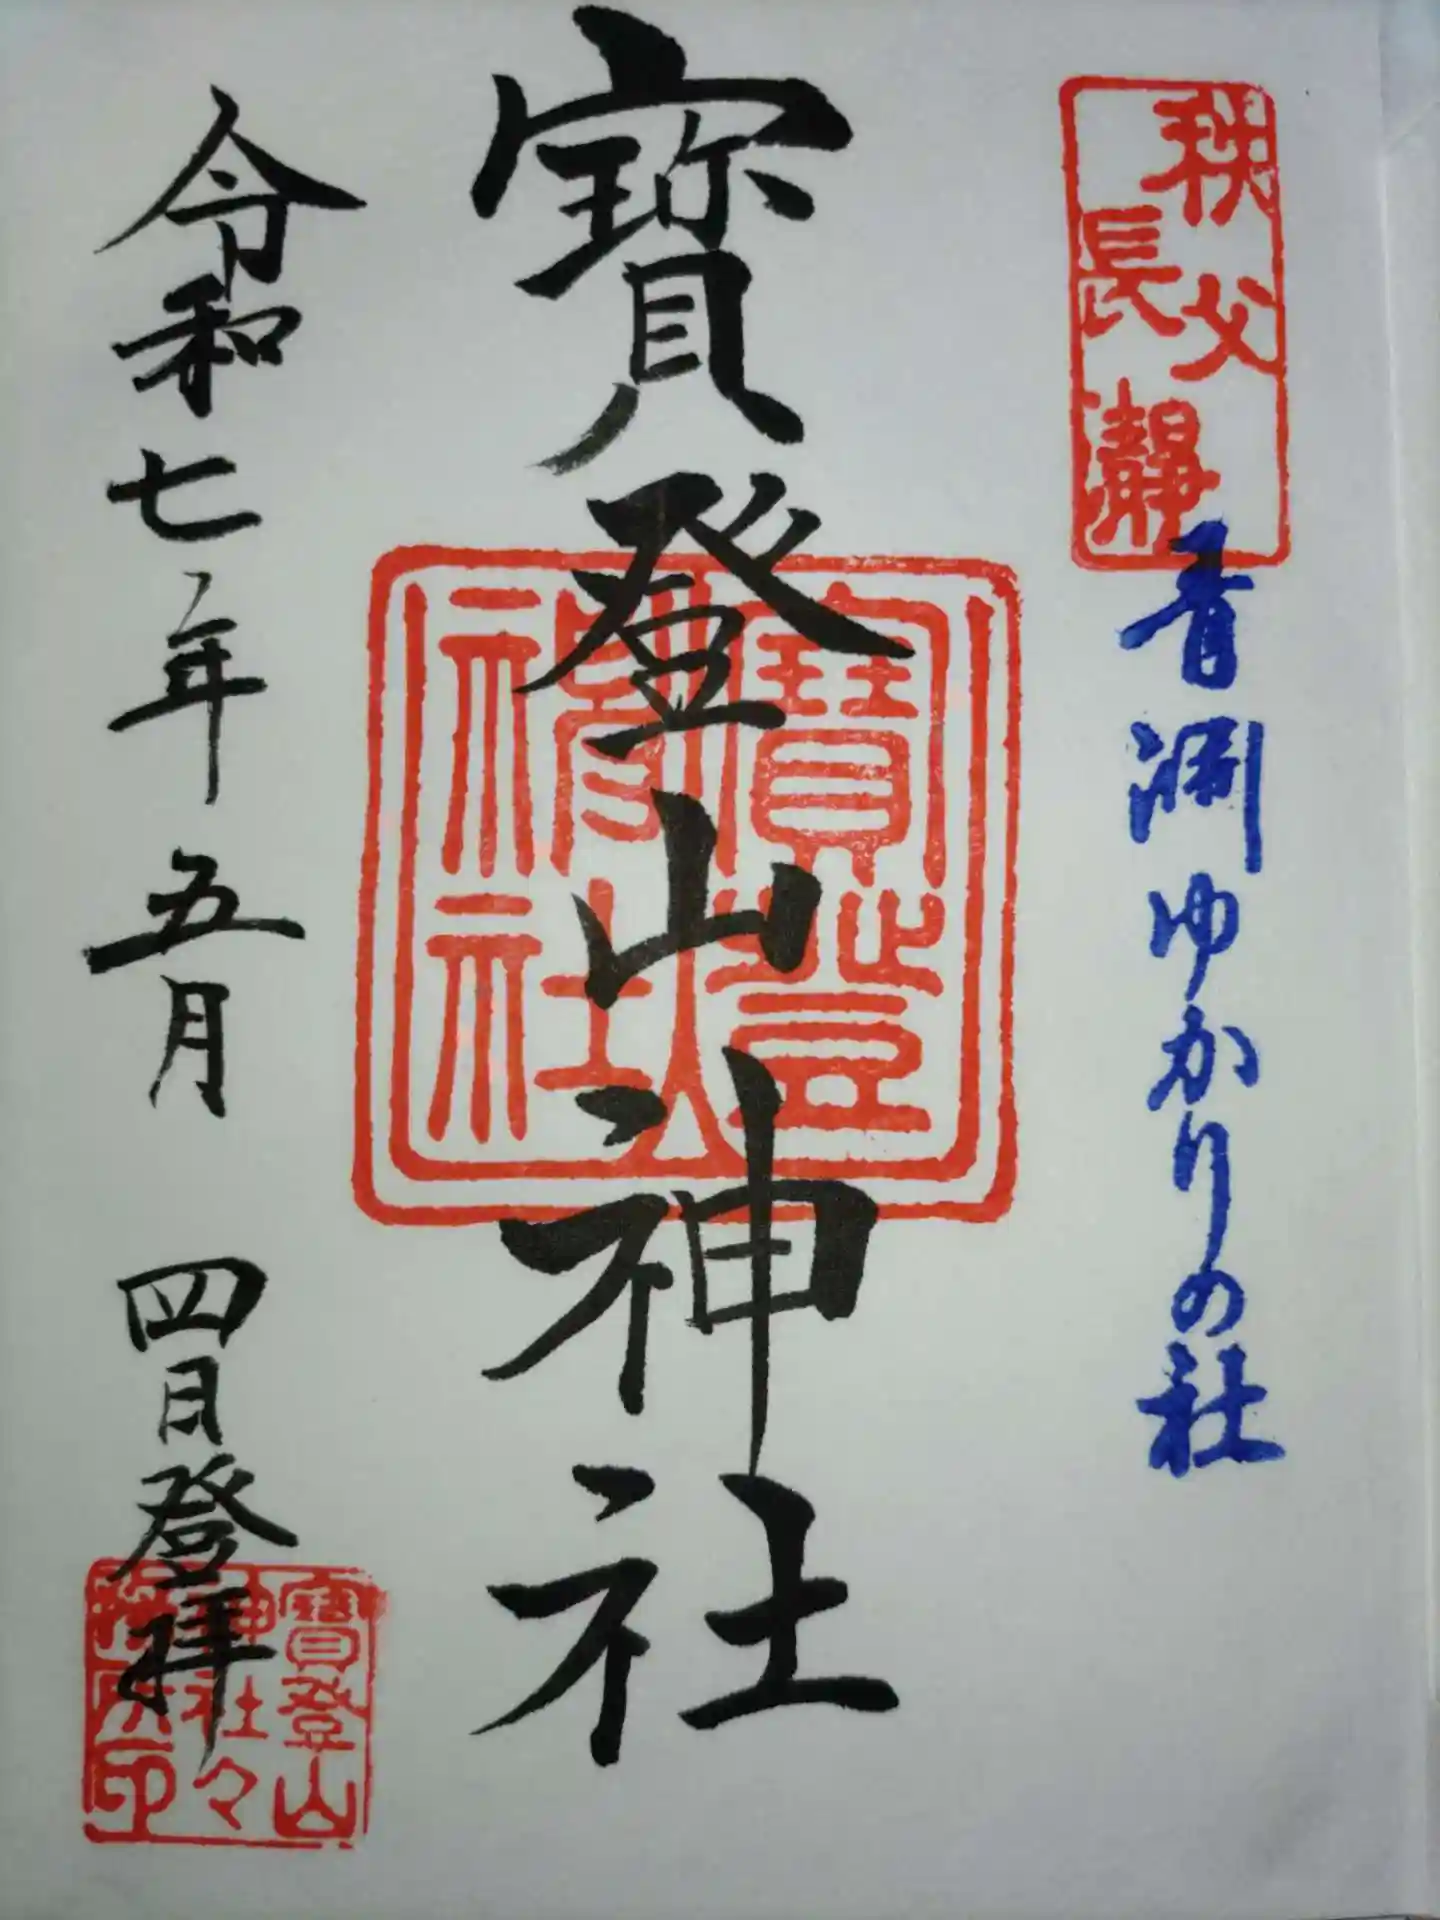 秩父
長瀞
青淵ゆかりの社
寶登山神社
寶登山
神社
令和七年五月 四日登拝
寶登山
神社々
務所印